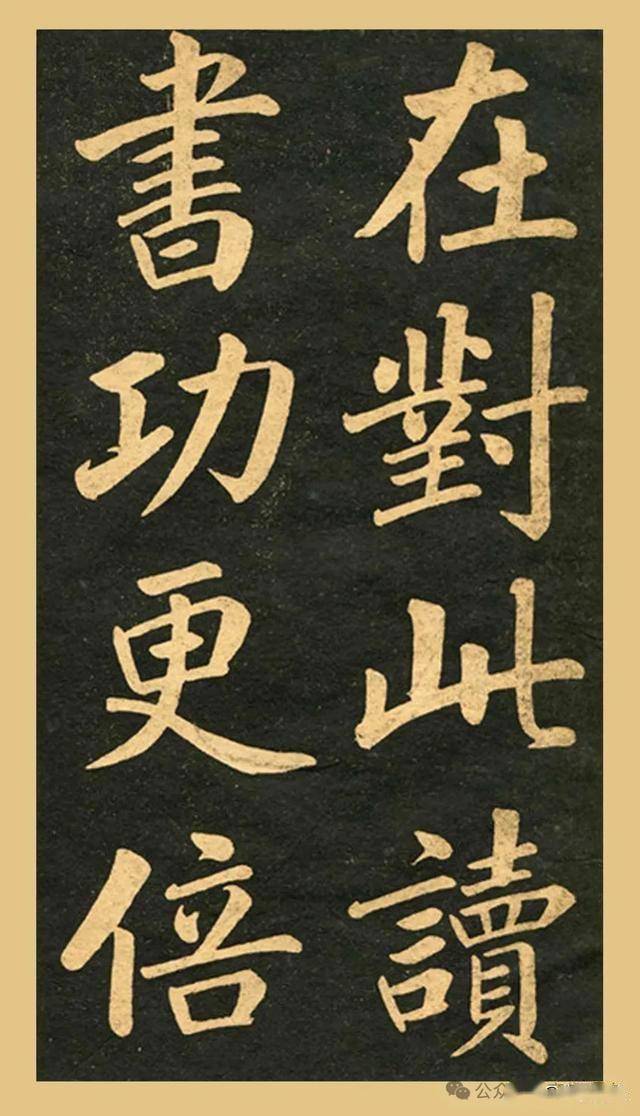 在對此讀
書功更倍
公众